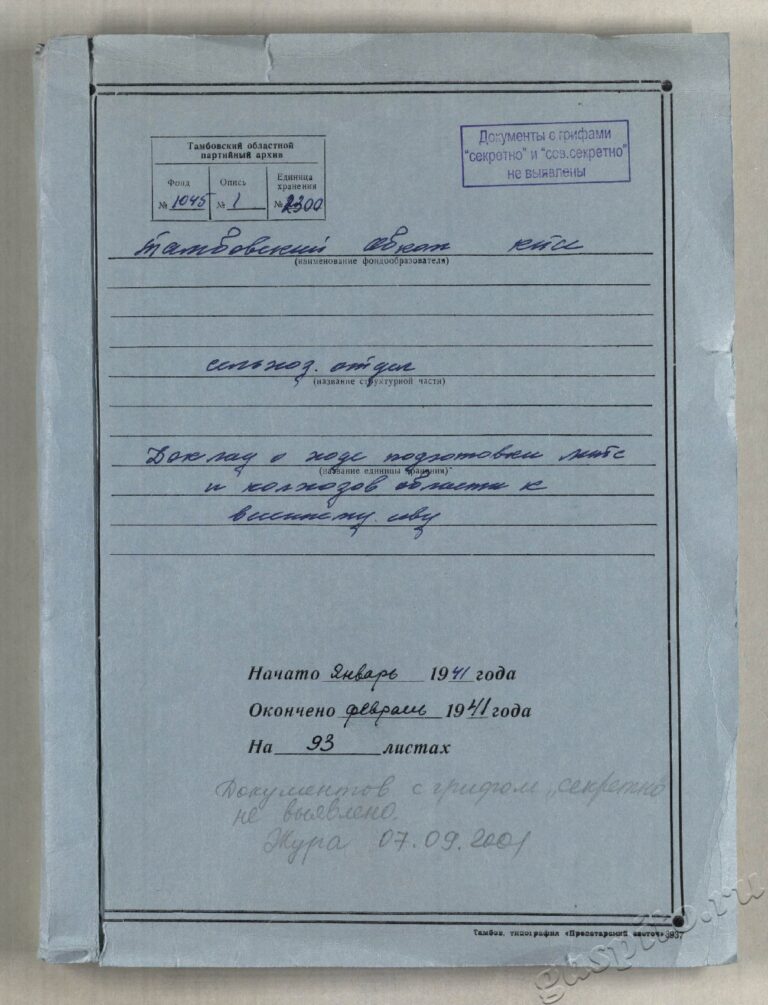 Тамбовский областной
партийный архив
Фонд
№ 1045
Опись
№ 1
Единица
хранения
№ 2300
Документы с грифами
"секретно" и "сов.секретно"
не выявлены
Тамбовский обком КПСС
(наименование фондообразователя)
сельхоз. отдел
(название структурной части)
Доклад о ходе подготовки МТС
(название единицы хранения)
и колхозов области к
весеннему севу
Начато Январь 1941 года
Окончено февраль 1941 года
На 93 листах
Документов с грифом „секретно
не выявлено.
Жура 07.09.2001
Тамбов, типография «Пролетарский светоч» 3937
gaspito.ru